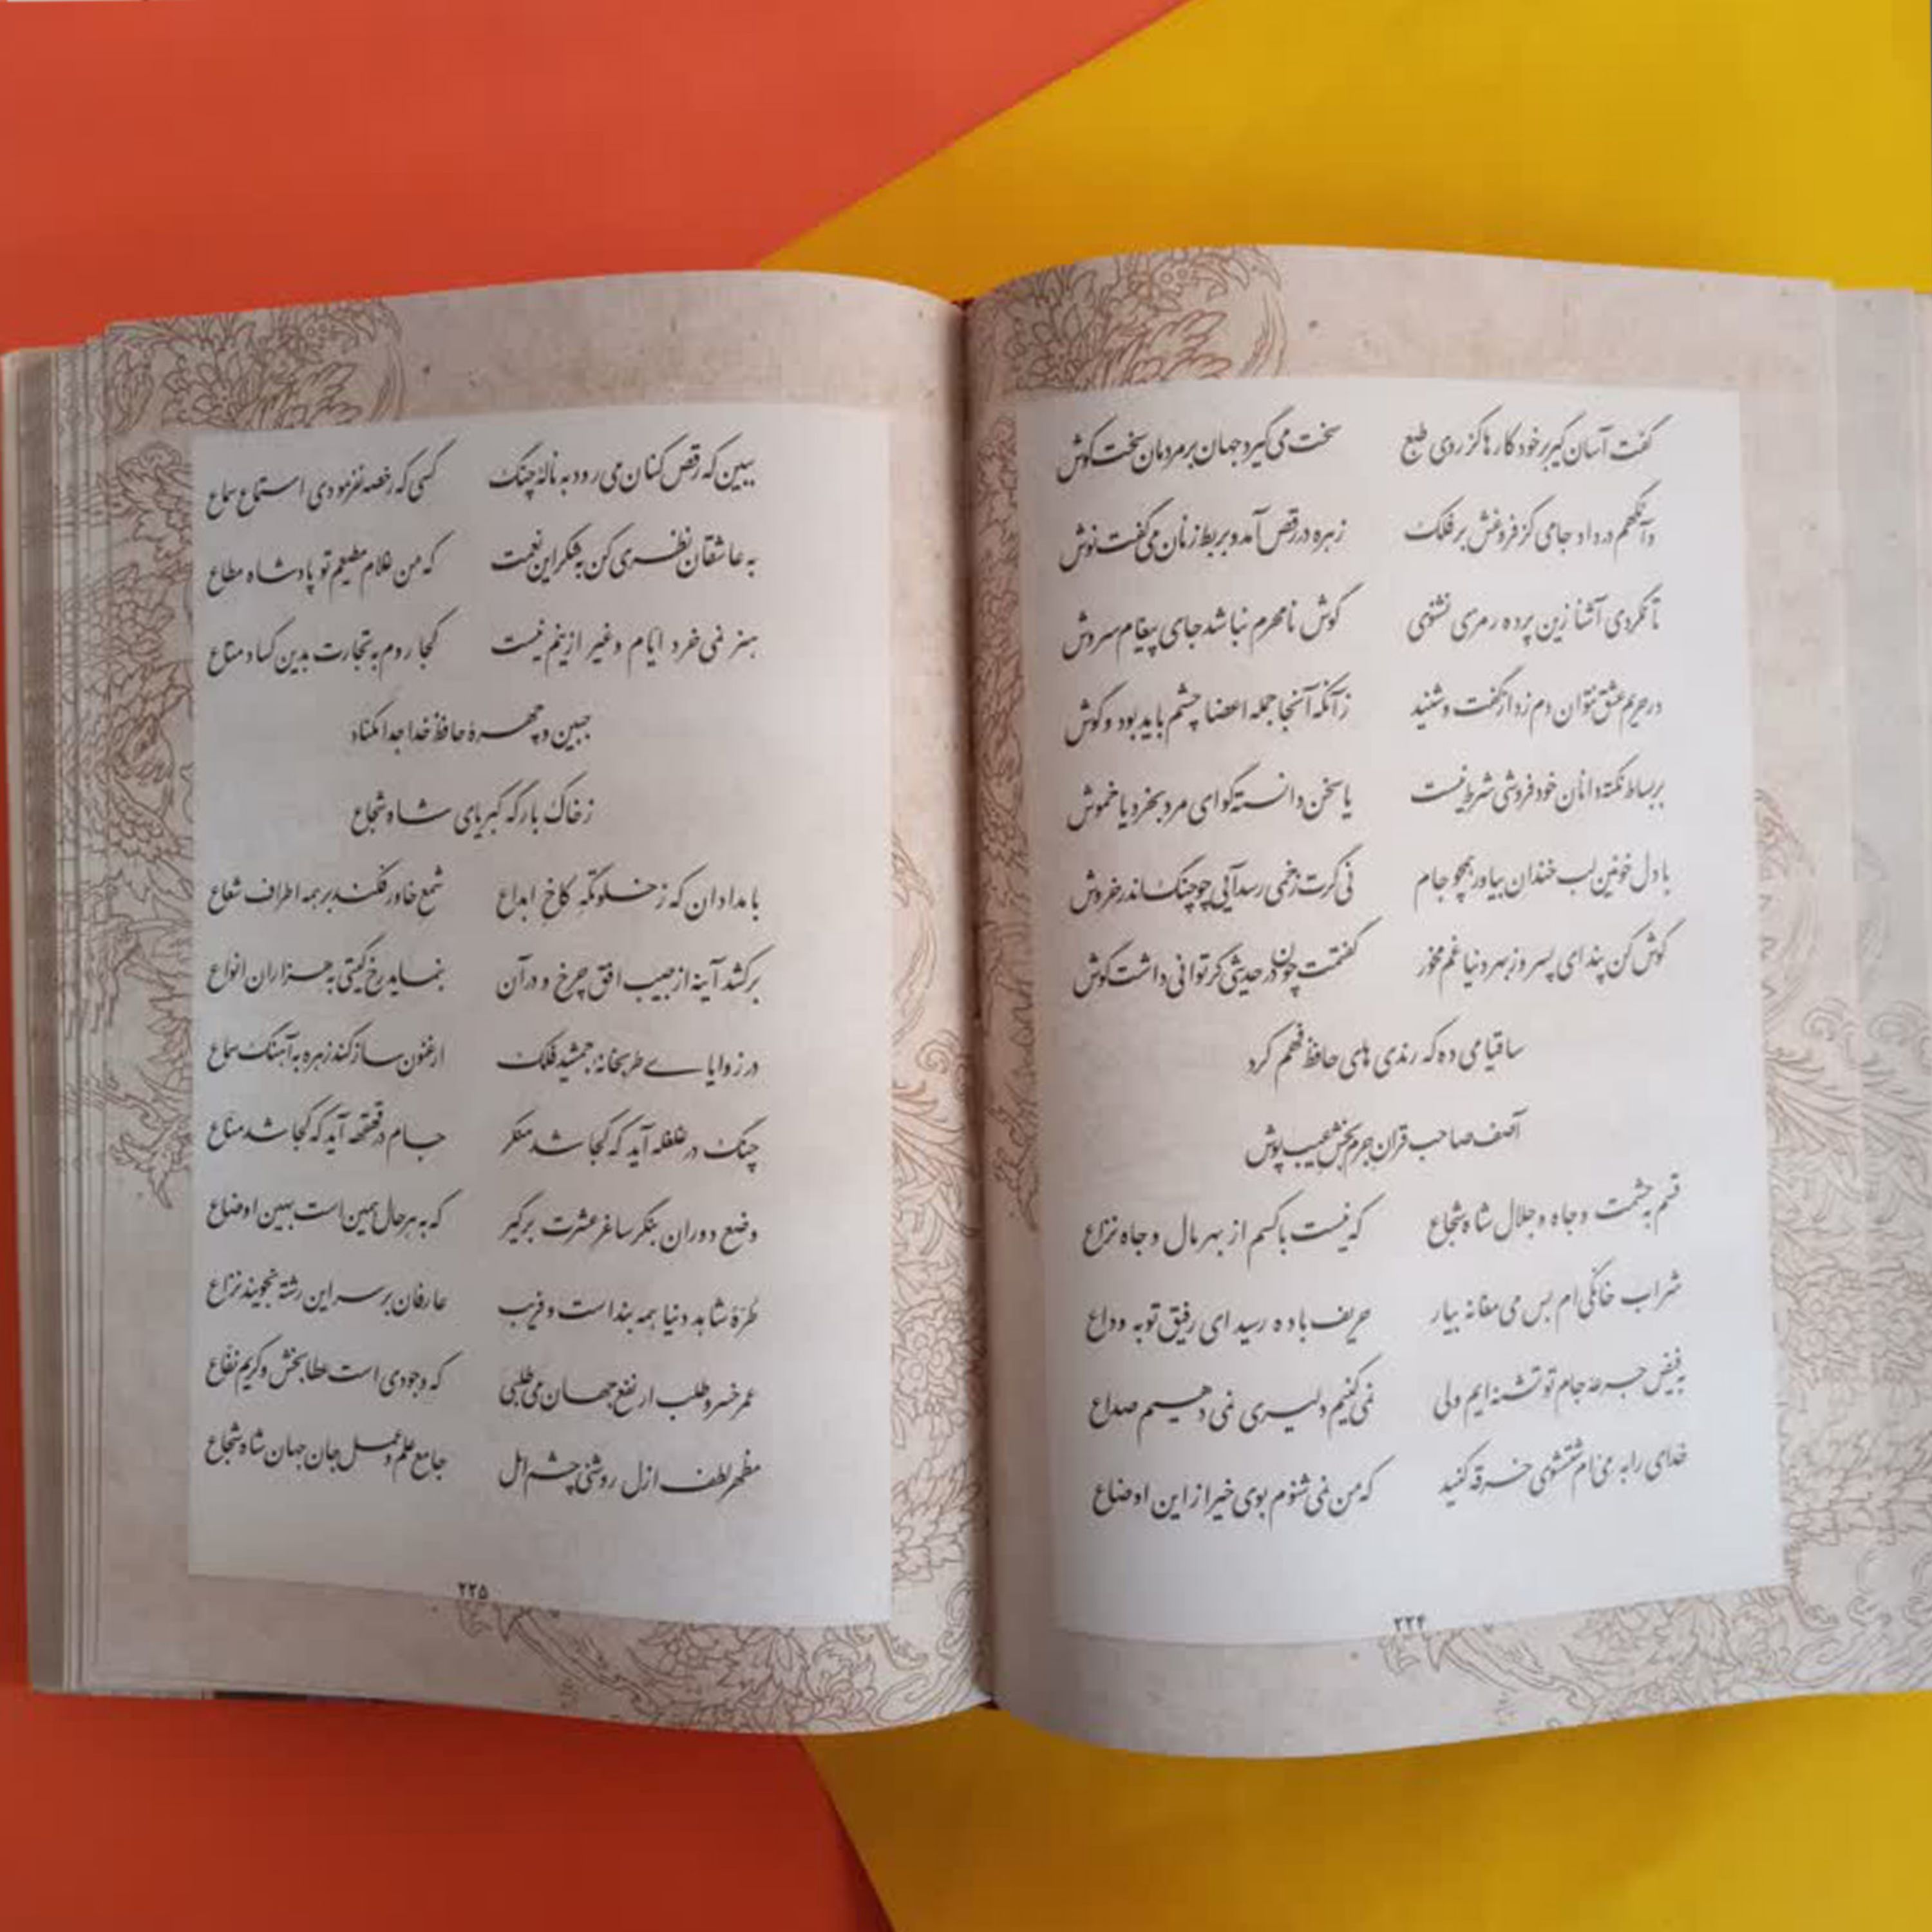 گفت آسان گیر بر خود کارها کز روی طبع سخت می گیرد جهان بر مردمان سخت کوش
وآنگهم در داد جامی کز فروغش بر فلک زهره در رقص آمد و بربط زنان می گفت نوش
تا نگردی آشنا زین پرده رمزی نشنوی گوش نامحرم نباشد جای پیغام سروش
در حریم عشق نتوان دم زد از گفت و شنید زآنکه آنجا جمله اعضا چشم باید بود و گوش
بر بساط نکته دانان خودفروشی شرط نیست یا سخن دانسته گو ای مرد بخرد یا خموش
با دل خونین لب خندان بیاور همچو جام نی گرت زخمی رسد آیی چو چنگ اندر خروش
گوش کن پند ای پسر وز بهر دنیا غم مخور گفتمت چون در حدیثی گر توانی داشت گوش
ساقیا می ده که رندی های حافظ فهم کرد
آصف صاحب قران جرم بخش عیب پوش
قسم به حشمت و جاه و جلال شاه شجاع که نیست با کسم از بهر مال و جاه نزاع
شراب خانگی ام بس می مغانه بیار حریف باده رسید ای رفیق توبه وداع
به فیض جرعه جام تو تشنه ایم ولی نمی کنیم دلیری نمی دهیم صداع
خدای را به می ام شستشوی خرقه کنید که من نمی شنوم بوی خیر از این اوضاع
۲۲۴
ببین که رقص کنان می رود به نالهٔ چنگ کسی که رخصه نفرمودی استماع سماع
به عاشقان نظری کن به شکر این نعمت که من غلام مطیعم تو پادشاه مطاع
هنر نمی خرد ایام و غیر از ینم نیست کجا روم به تجارت بدین کساد متاع
جبین و چهرهٔ حافظ خدا جدا مکناد
ز خاک بارگه کبریای شاه شجاع
بامدادان که ز خلوتگه کاخ ابداع شمع خاور فکند بر همه اطراف شعاع
برکشد آینه از جیب افق چرخ و در آن بنماید رخ گیتی به هزاران انواع
در زوایای طربخانه جمشید فلک ارغنون ساز کند زهره به آهنگ سماع
چنگ در غلغله آید که کجا شد منکر جام در قهقهه آید که کجا شد مناع
وضع دوران بنگر ساغر عشرت برگیر که به هر حال همین است بهین اوضاع
طرهٔ شاهد دنیا همه بند است و فریب عارفان بر سر این رشته نجویند نزاع
عمر خسرو طلب ار نفع جهان می طلبی که وجودی است عطابخش و کریم نفاع
مظهر لطف ازل روشنی چشم امل جامع علم و عمل جان جهان شاه شجاع
۲۲۵